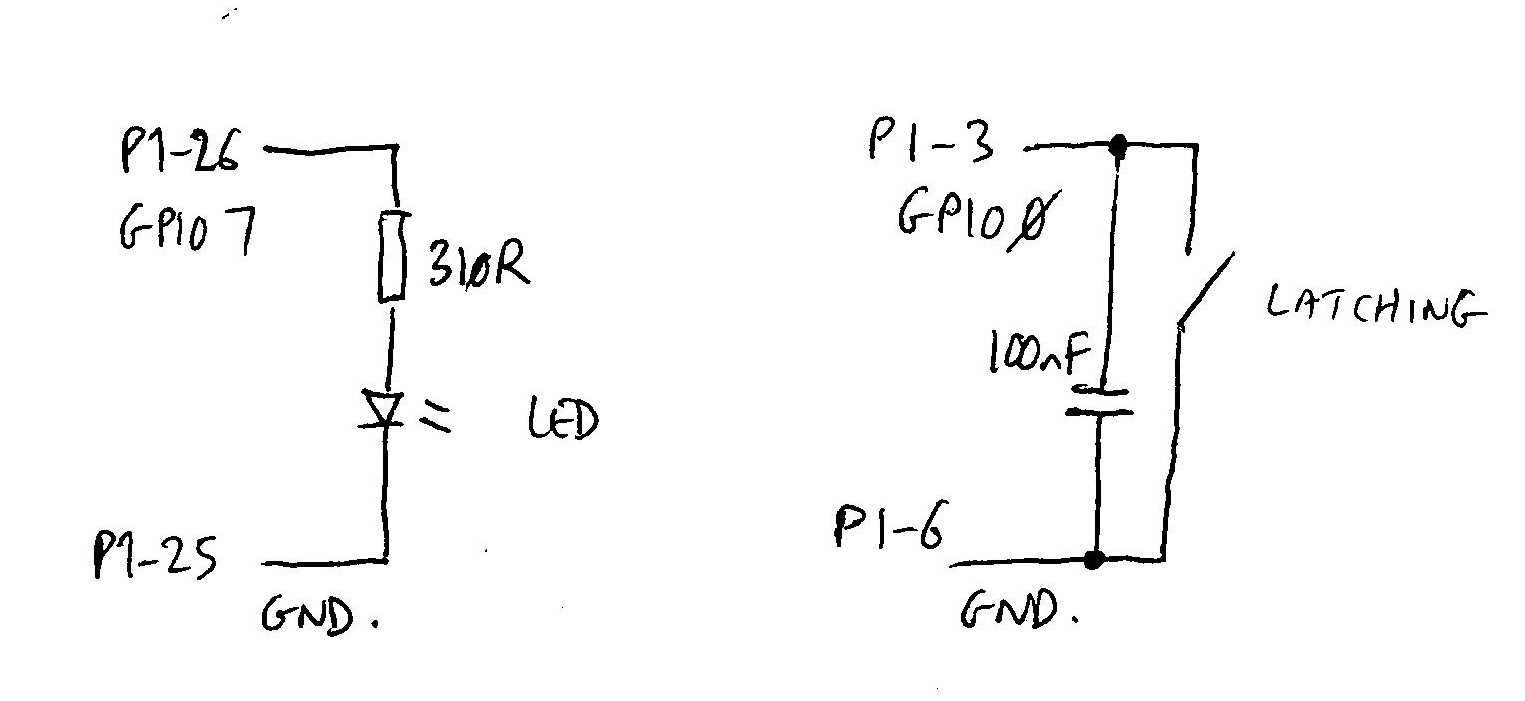 P1-26
GPIO 7
310R
LED
P1-25
GND.
P1-3
GPIO 0
100nF
LATCHING
P1-6
GND.